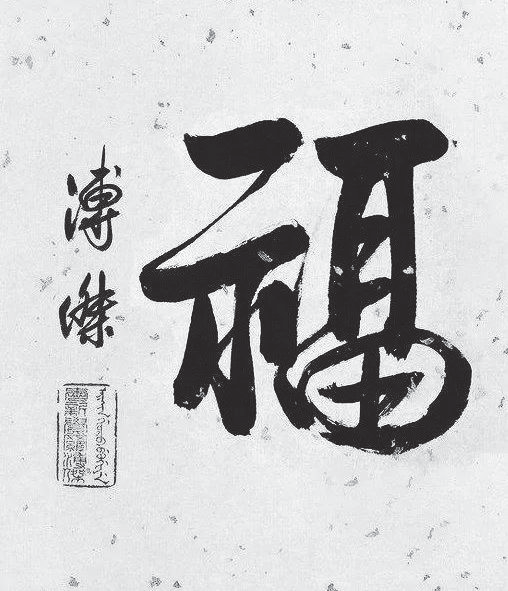 福
溥傑